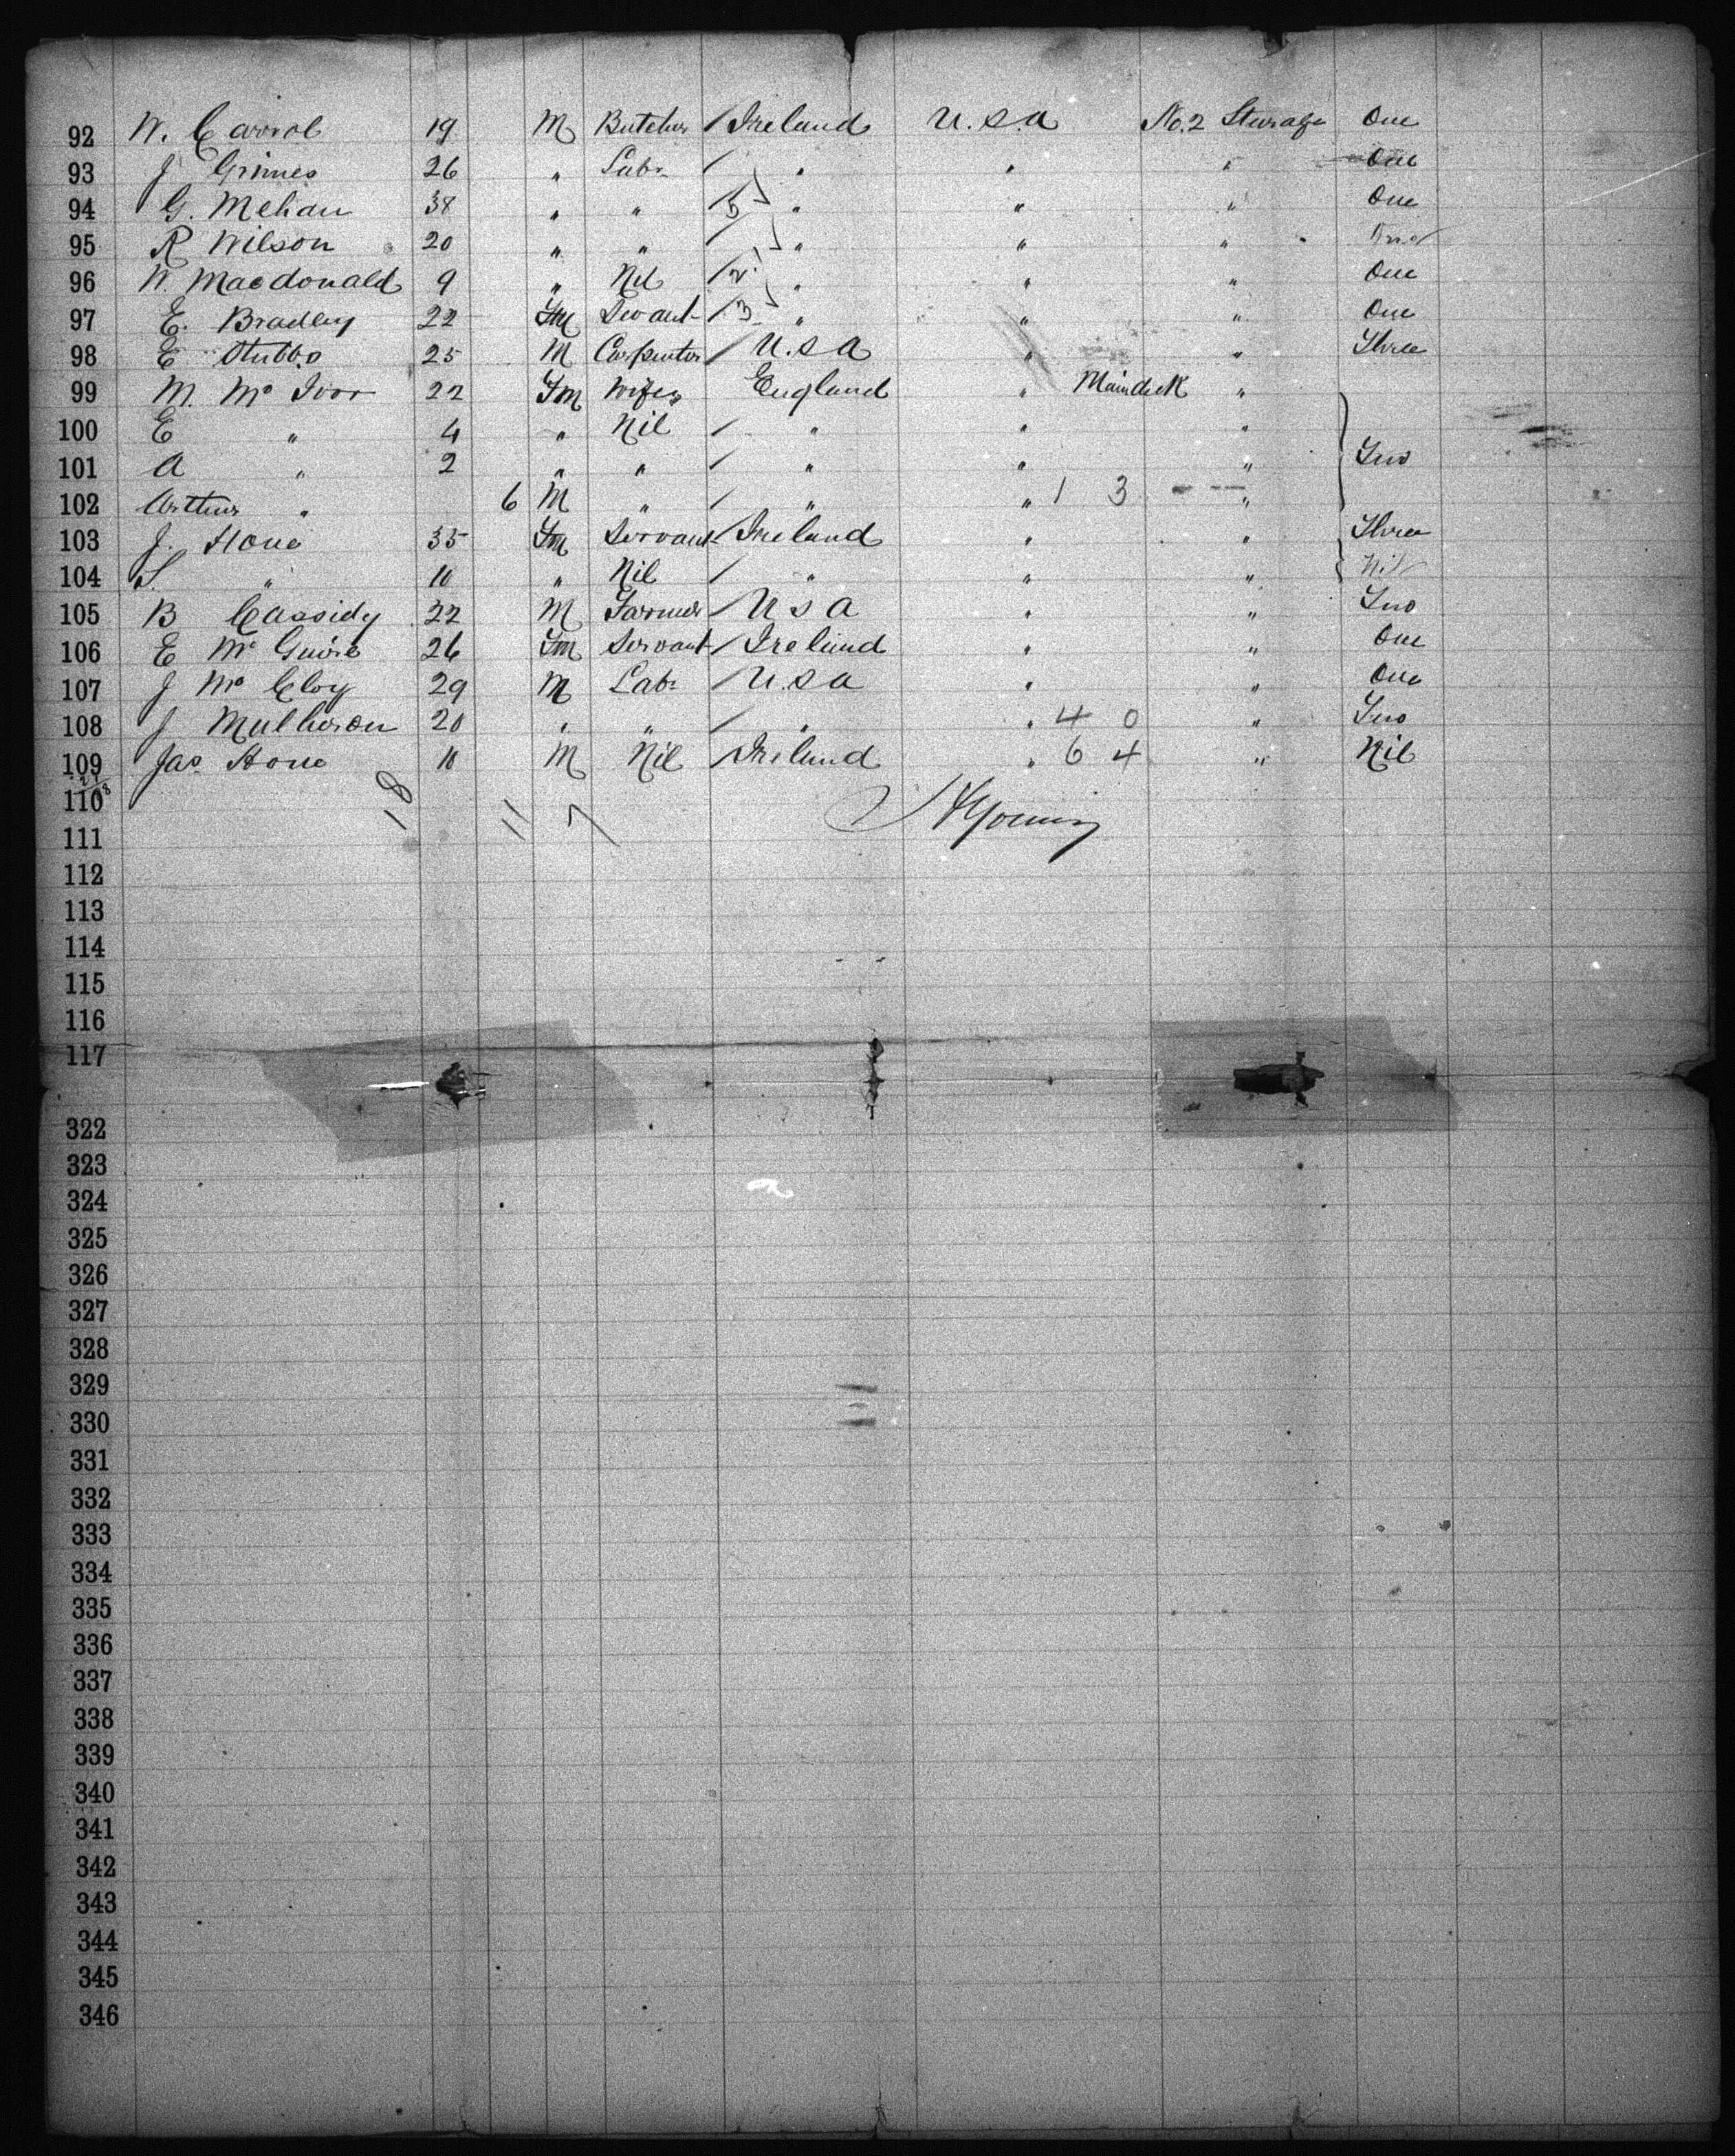 92 W. Carrol 19 M Butcher / Ireland U.S.A No. 2 Sturage One
93 J Grimes 26 " Labr / " " " One
94 G. Mehan 38 " " / 5 " " " One
95 R Wilson 20 " " / " " "
96 W. Macdonald 9 " Nil / 2 " " " One
97 E. Bradley 22 Fm Servant / 3 " " " One
98 E Stubbs 25 M Carpenter / U.S.A " " Three
99 M. Mc Ivor 22 Fm Wife England " Maindeck "
100 E " 4 " Nil / " " "
101 A " 2 " " / " " " Two
102 Arthur " 6 M " / " " 1 3 "
103 J. Hone 35 Fm Servant Ireland " " Three
104 S. " 10 " Nil / " " " Nil
105 B Cassidy 22 M Farmer / U S A " " Two
106 E Mc Guire 26 Fm Servant / Ireland " " One
107 J Mc Cloy 29 M Labr / U.S.A " " One
108 J Mulheron 20 " " / " " 4 0 " Two
109 Jas Hone 10 M Nil / Ireland " 6 4 " Nil
110 18 11 7
111
112
113
114
115
116
117
322
323
324
325
326
327
328
329
330
331
332
333
334
335
336
337
338
339
340
341
342
343
344
345
346